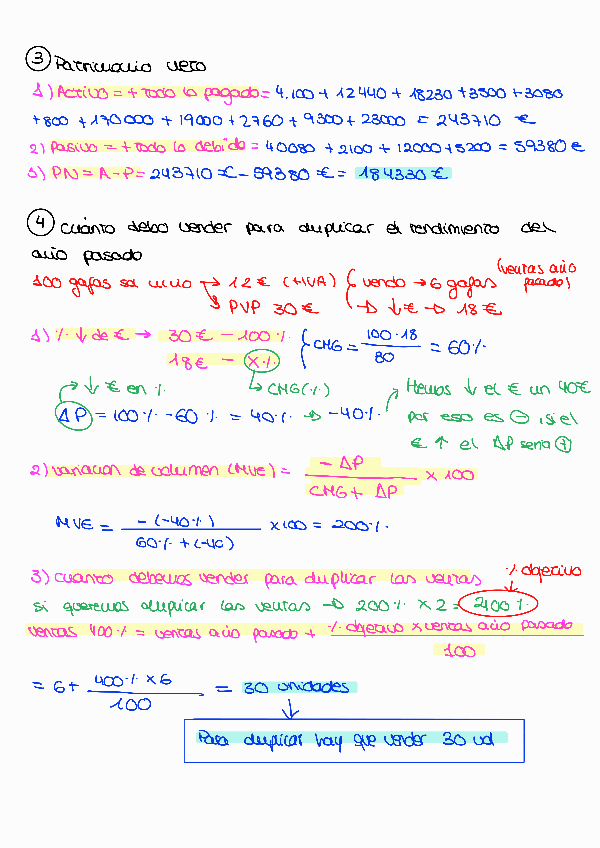 ③ Patrimonio neto
1) Activo = + Todo lo pagado = 4.100 + 12440 + 18230 + 3500 + 3080
+ 800 + 170000 + 19000 + 2760 + 9300 + 23000 = 243710 €
2) Pasivo = + todo lo debido = 40080 + 2100 + 12000 + 5200 = 59380 €
3) PN = A - P = 243710 € - 59380 € = 184330 €
④ Cuánto debo vender para duplicar el rendimiento del
año pasado
100 gafas sa → 12 € (+IVA) { vendo → 6 gafas (ventas año pasado)
↳ PVP 30 € → ↓ € → 18 €
1) % ↓ de € → 30 € — 100 %
18 € — X %
CMG = 100·18 / 80 = 60 %
→ ↓ € en %
↳ CMG (%)
Hemos ↓ el € un 40€
ΔP = 100 % - 60 % = 40 % → -40 %
por eso es ⊖, si el
€ ↑ el ΔP seria ⊕
2) variacion de volumen (MVE) = - ΔP / CMG + ΔP x 100
MVE = - (-40 %) / 60 % + (-40) x 100 = 200 %
3) cuanto debemos vender para duplicar las ventas
% objetivo
si queremos duplicar las ventas → 200 % x 2 = 400 %
ventas 400 % = ventas año pasado + % objetivo x ventas año pasado / 100
= 6 + 400 % x 6 / 100 = 30 unidades
Para duplicar hay que vender 30 ud